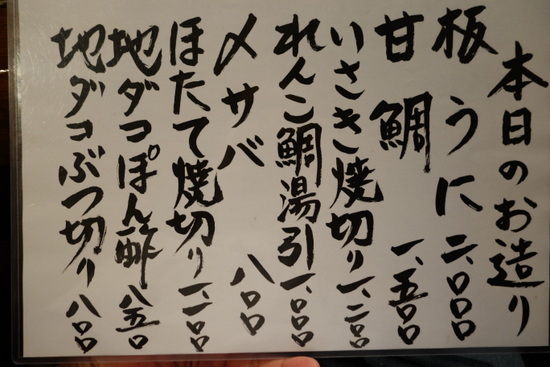 本日のお造り
板うに 二、〇〇〇
甘鯛 一、五〇〇
いさき焼切り 一、二〇〇
れんこ鯛湯引 一、〇〇〇
〆サバ 八〇〇
ほたて焼切り 一、二〇〇
地ダコぽん酢 八五〇
地ダコぶつ切り 八〇〇